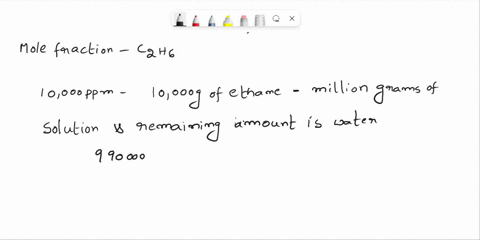 Mole fraction - C2H6
10,000 ppm - 10,000g of ethane - million grams of
Solution & remaining amount is water
990000